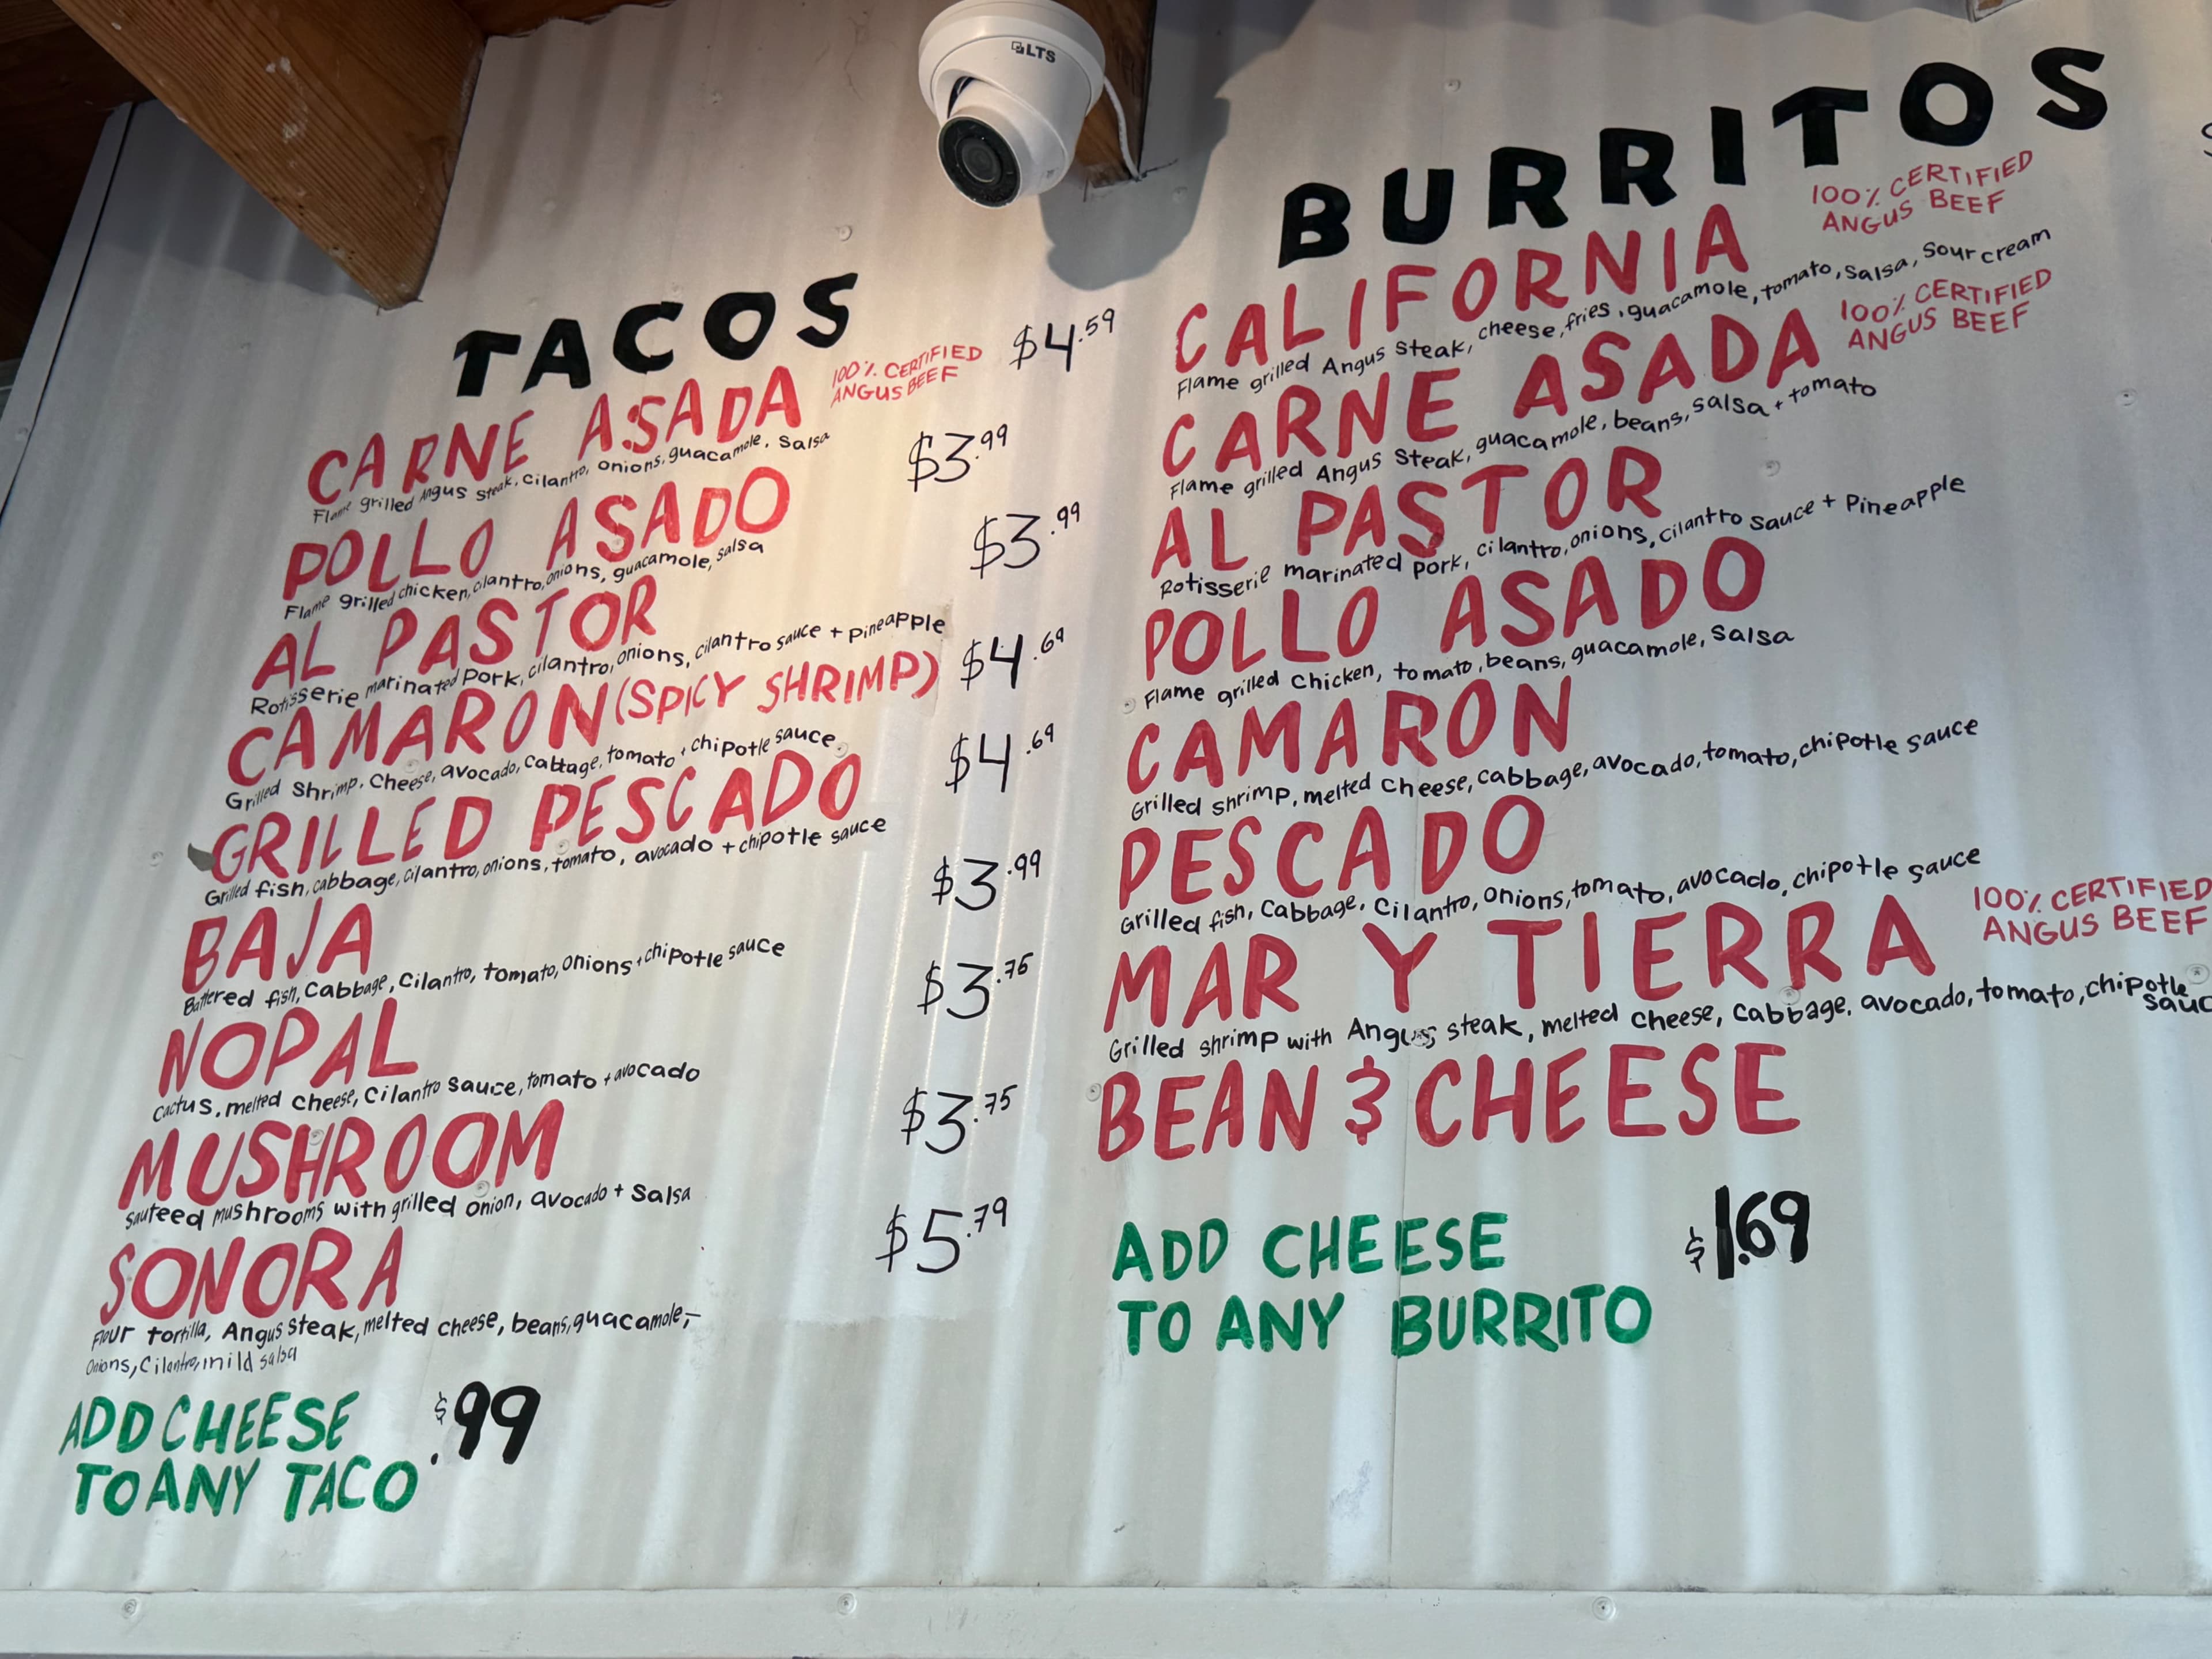 LTS
TACOS
CARNE ASADA 100% CERTIFIED ANGUS BEEF $4.59
Flame grilled Angus steak, cilantro, onions, guacamole, salsa
POLLO ASADO $3.99
Flame grilled chicken, cilantro, onions, guacamole, salsa
AL PASTOR $3.99
Rotisserie marinated pork, cilantro, onions, cilantro sauce + pineapple
CAMARON (SPICY SHRIMP) $4.69
Grilled Shrimp, Cheese, avocado, cabbage, tomato, chipotle sauce
GRILLED PESCADO $4.69
Grilled fish, cabbage, cilantro, onions, tomato, avocado + chipotle sauce
BAJA $3.99
Battered fish, cabbage, cilantro, tomato, onions + chipotle sauce
NOPAL $3.75
Cactus, melted cheese, cilantro sauce, tomato + avocado
MUSHROOM $3.75
Sauteed mushrooms with grilled onion, avocado + salsa
SONORA $5.79
Flour tortilla, Angus steak, melted cheese, beans, guacamole,
onions, cilantro, mild salsa
ADD CHEESE $.99
TO ANY TACO
BURRITOS
CALIFORNIA 100% CERTIFIED ANGUS BEEF
Flame grilled Angus steak, cheese, fries, guacamole, tomato, salsa, sour cream
CARNE ASADA 100% CERTIFIED ANGUS BEEF
Flame grilled Angus steak, guacamole, beans, salsa + tomato
AL PASTOR
Rotisserie marinated pork, cilantro, onions, cilantro sauce + pineapple
POLLO ASADO
Flame grilled chicken, tomato, beans, guacamole, salsa
CAMARON
Grilled shrimp, melted cheese, cabbage, avocado, tomato, chipotle sauce
PESCADO
Grilled fish, cabbage, cilantro, onions, tomato, avocado, chipotle sauce
MAR Y TIERRA 100% CERTIFIED ANGUS BEEF
Grilled shrimp with Angus steak, melted cheese, cabbage, avocado, tomato, chipotle
BEAN & CHEESE
ADD CHEESE $1.69
TO ANY BURRITO